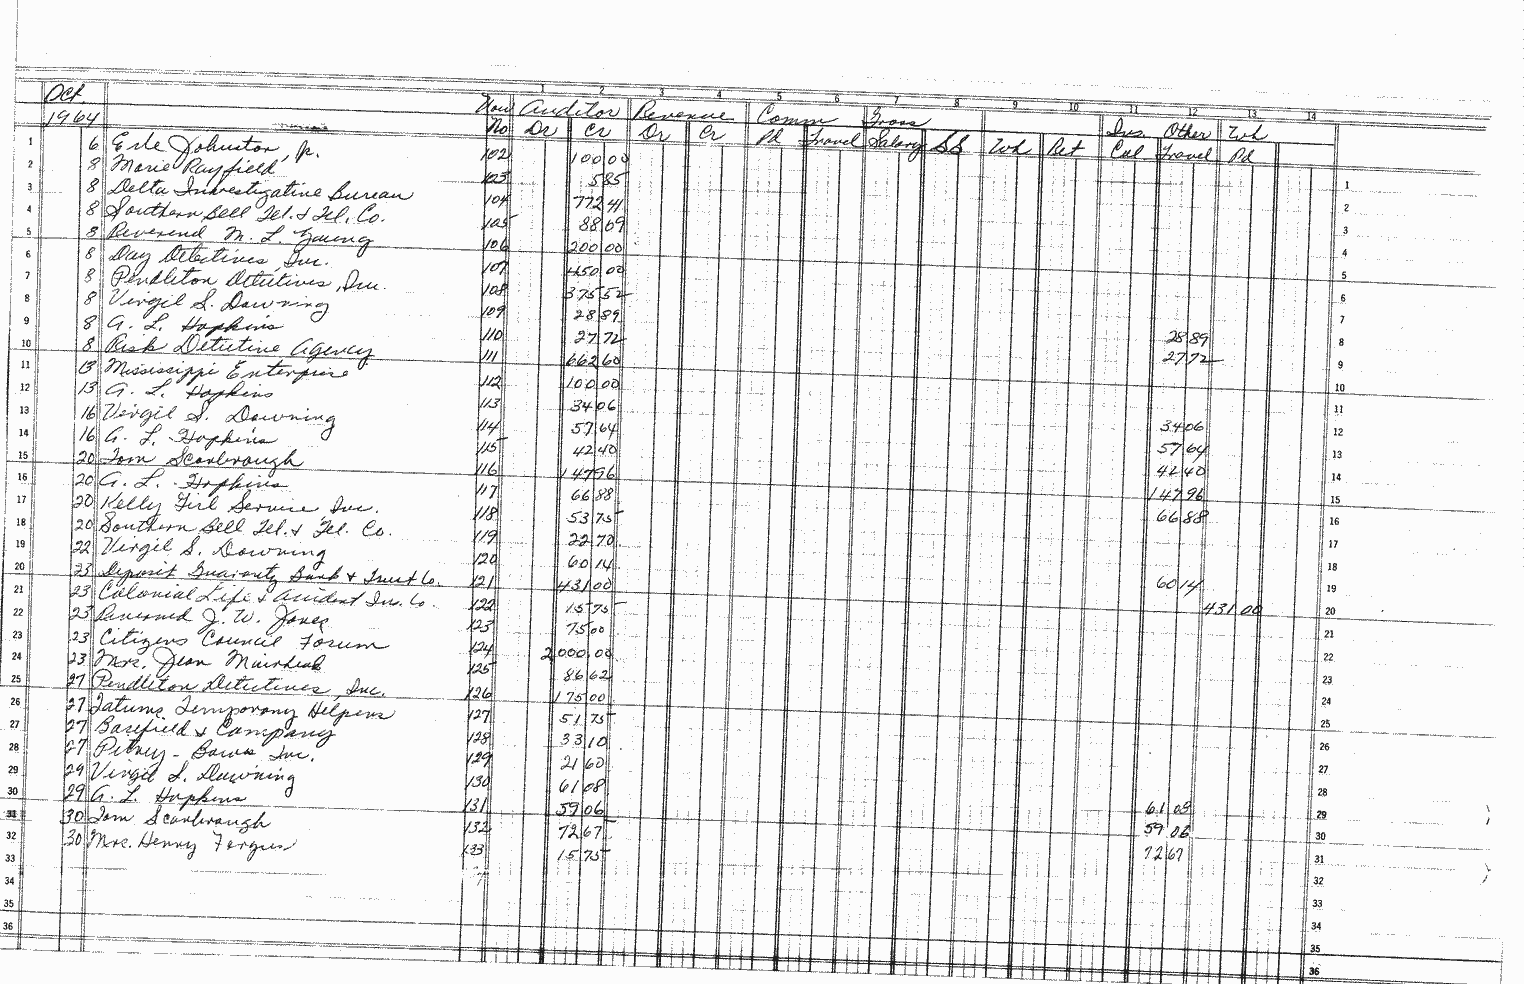 1 2 3 4 5 6 7 8 9 10 11 12 13 14
Oct. Vou Auditor Revenue Comm Gross Ins. Other Wh
1964 No Dr Cr Dr Cr Pd Travel Salary SS Wh Ret Col Travel Pd
1 6 Erle Johnston, Jr. 102 100 00 1
2 8 Marie Rayfield 103 5 85 2
3 8 Delta Investigative Bureau 104 772 41 3
4 8 Southern Bell Tel. & Tel. Co. 105 88 09 4
5 8 Reverend M. L. Young 106 200 00 5
6 8 Day Detectives, Inc. 107 450 00 6
7 8 Pendleton Detectives, Inc. 108 375 52 7
8 8 Virgil S. Downing 109 28 89 28 89 8
9 8 A. L. Hopkins 110 27 72 27 72 9
10 8 Risk Detective Agency 111 662 60 10
11 13 Mississippi Enterprise 112 100 00 11
12 13 A. L. Hopkins 113 34 06 34 06 12
13 16 Virgil S. Downing 114 57 64 57 64 13
14 16 A. L. Hopkins 115 42 40 42 40 14
15 20 Tom Scarbrough 116 147 96 147 96 15
16 20 A. L. Hopkins 117 66 88 66 88 16
17 20 Kelly Girl Service Inc. 118 53 75 17
18 20 Southern Bell Tel. & Tel. Co. 119 22 70 18
19 22 Virgil S. Downing 120 60 14 60 14 19
20 23 Deposit Guaranty Bank & Trust Co. 121 431 00 431 00 20
21 23 Colonial Life & Accident Ins. Co. 122 15 75 21
22 23 Reverend J. W. Jones 123 75 00 22
23 23 Citizens Council Forum 124 2,000.00 23
24 23 Mrs. Jean Muirhead 125 86 62 24
25 27 Pendleton Detectives, Inc. 126 175 00 25
26 27 Tatums Temporary Helpers 127 51 75 26
27 27 Barefield & Company 128 33 10 27
28 27 Pitney-Bowes Inc. 129 21 60 28
29 29 Virgil S. Downing 130 61 08 61 08 29
30 29 A. L. Hopkins 131 59 06 59 06 30
31 30 Tom Scarbrough 132 72 67 72 67 31
32 30 Mrs. Henry Fergus 133 15 75 32
33 33
34 34
35 35
36 36